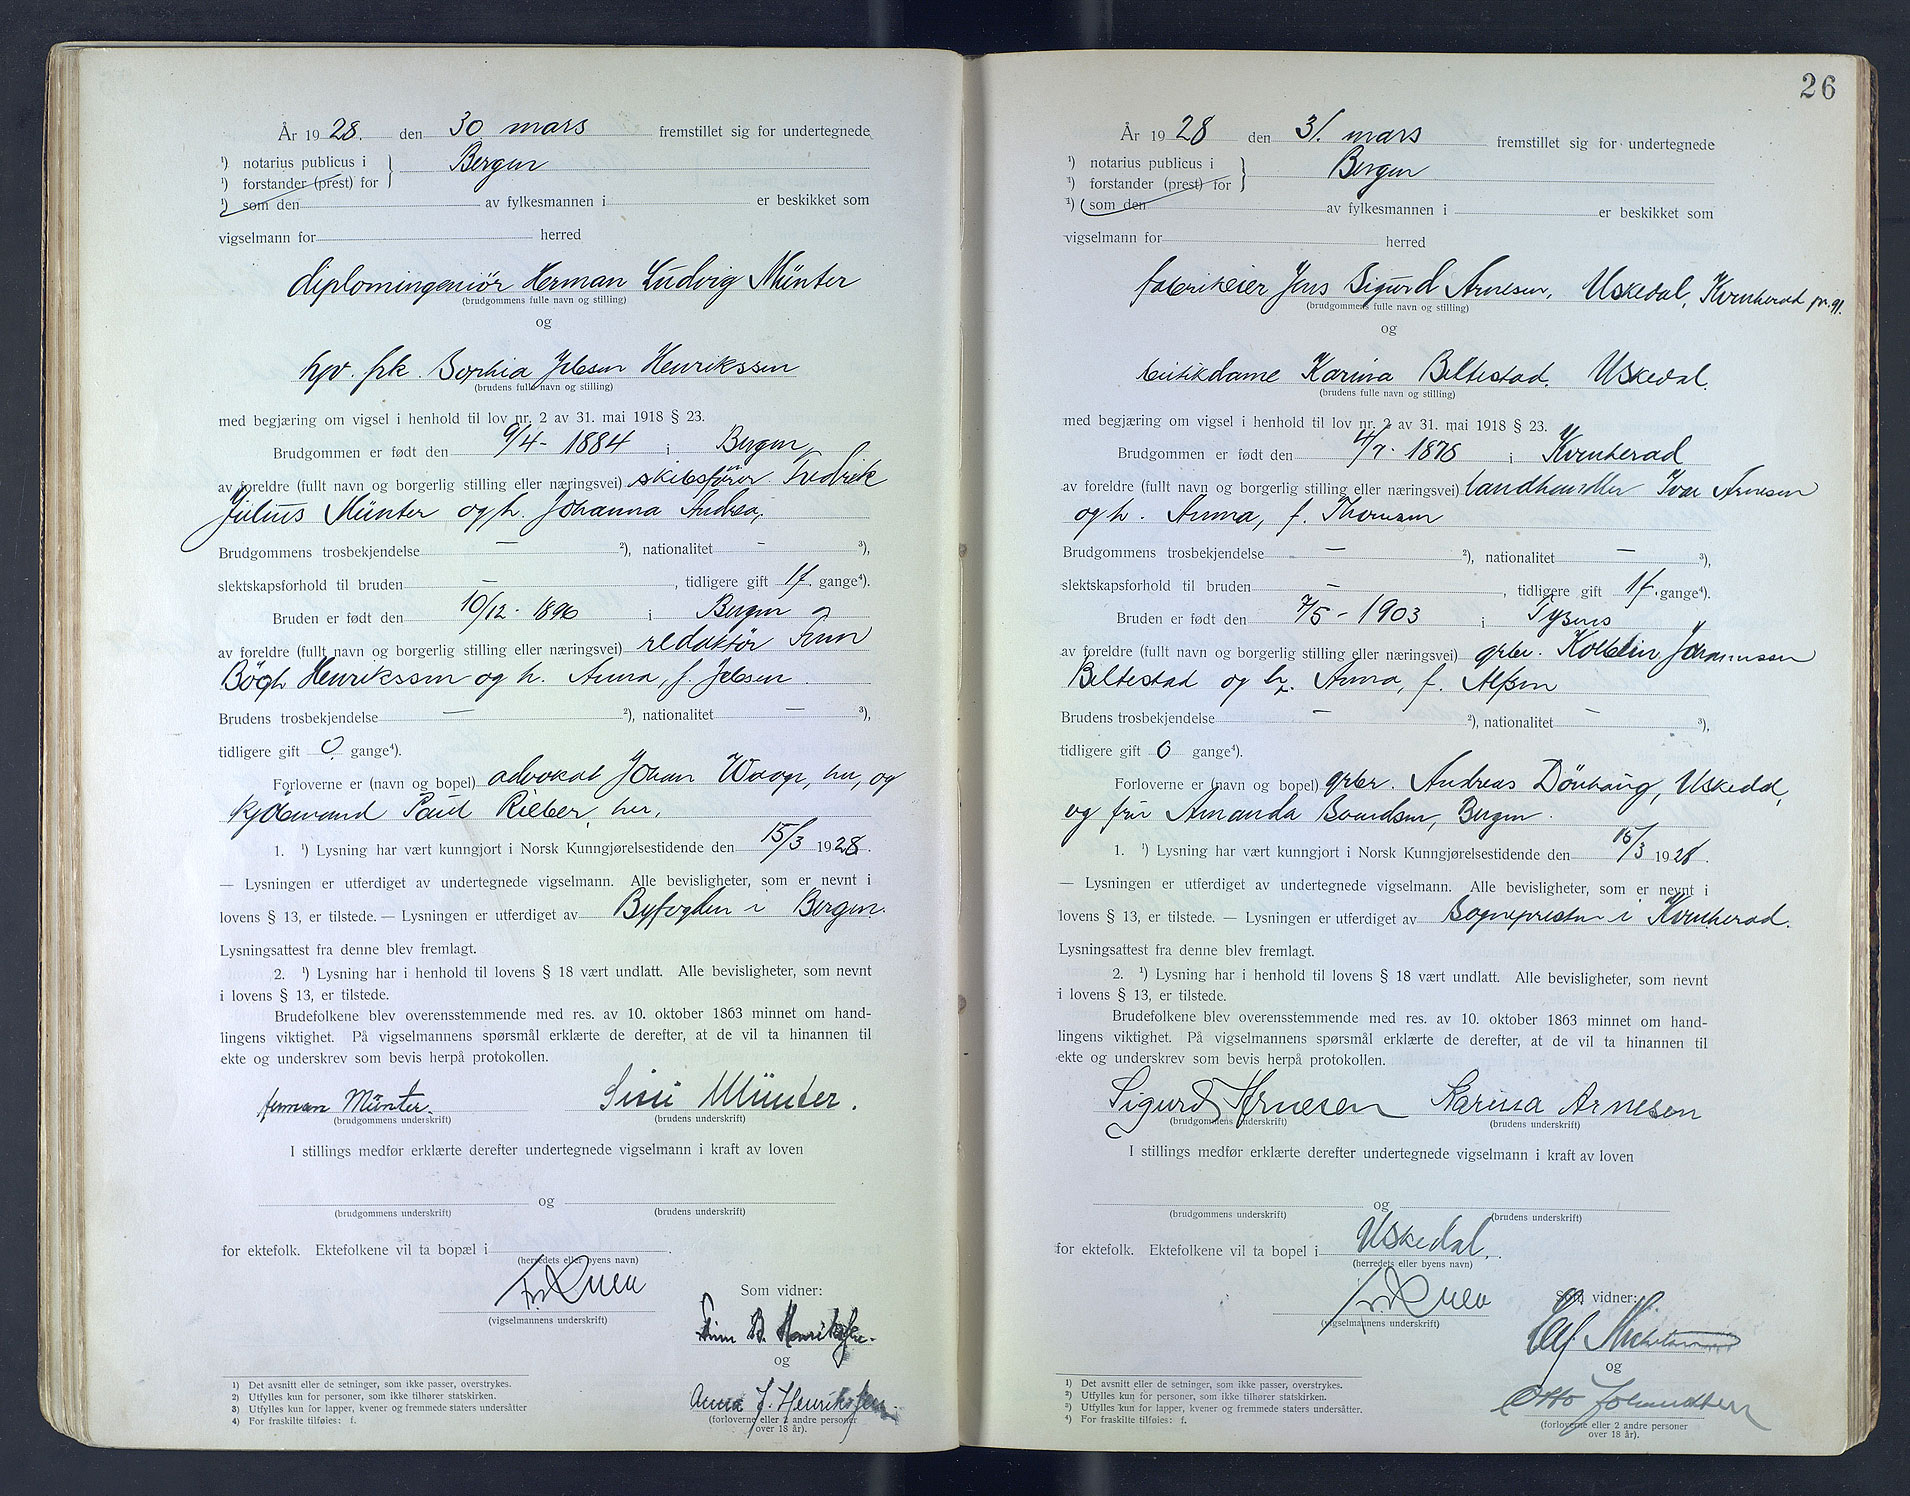 År 1928. den 30. mars fremstillet sig for undertegnede
¹) notarius publicus i } Bergen
¹) forstander (prest) for
¹) som den av fylkesmannen i er beskikket som
vigselmann for herred
diplomingeniør Herman Ludvig Münter
(brudgommens fulle navn og stilling)
og
hpv. frk. Sophia Jebsen Henrikssen
(brudens fulle navn og stilling)
med begjæring om vigsel i henhold til lov nr. 2 av 31. mai 1918 § 23.
Brudgommen er født den 9/4 - 1884 i Bergen,
av foreldre (fullt navn og borgerlig stilling eller næringsvei) skibsfører Fredrik
Julius Münter og h. Johanna Andrea,
Brudgommens trosbekjendelse — ²), nationalitet — ³),
slektskapsforhold til bruden — , tidligere gift 1f. gange⁴).
Bruden er født den 10/12 - 1896 i Bergen
av foreldre (fullt navn og borgerlig stilling eller næringsvei) redaktør Finn
Bögh Henrikssen og h. Anna, f. Jebsen.
Brudens trosbekjendelse — ²), nationalitet — ³),
tidligere gift 0 gange⁴).
Forloverne er (navn og bopel) advokat Johan Waage, her, og
kjøbmand Paul Rieber, her,
1. ¹) Lysning har vært kunngjort i Norsk Kunngjørelsestidende den 15/3 1928.
— Lysningen er utferdiget av undertegnede vigselmann. Alle bevisligheter, som er nevnt i
lovens § 13, er tilstede. — Lysningen er utferdiget av Byfogden i Bergen.
Lysningsattest fra denne blev fremlagt.
2. ¹) Lysning har i henhold til lovens § 18 vært undlatt. Alle bevisligheter, som nevnt
i lovens § 13, er tilstede.
Brudefolkene blev overensstemmende med res. av 10. oktober 1863 minnet om hand-
lingens viktighet. På vigselmannens spørsmål erklærte de derefter, at de vil ta hinannen til
ekte og underskrev som bevis herpå protokollen.
Herman Münter. Sisi Münter.
(brudgommens underskrift) (brudens underskrift)
I stillings medfør erklærte derefter undertegnede vigselmann i kraft av loven
og
(brudgommens underskrift) (brudens underskrift)
for ektefolk. Ektefolkene vil ta bopæl i .
(herredets eller byens navn)
Som vidner:
(vigselmannens underskrift)
Finn B. Henrikssen.
og
Anna J. Henrikssen
(forloverne eller 2 andre personer
over 18 år).
1) Det avsnitt eller de setninger, som ikke passer, overstrykes.
2) Utfylles kun for personer, som ikke tilhører statskirken.
3) Utfylles kun for lapper, kvener og fremmede staters undersåtter
4) For fraskilte tilføies: f.
26
År 1928 den 31. mars fremstillet sig for undertegnede
¹) notarius publicus i } Bergen
¹) forstander (prest) for
¹) som den av fylkesmannen i er beskikket som
vigselmann for herred
fabrikeier Jens Sigurd Arnesen, Uskedal, Kvinherad pr. gl.
(brudgommens fulle navn og stilling)
og
butikdame Karina Beltestad, Uskedal.
(brudens fulle navn og stilling)
med begjæring om vigsel i henhold til lov nr. 2 av 31. mai 1918 § 23.
Brudgommen er født den 4/7 - 1878 i Kvinherad
av foreldre (fullt navn og borgerlig stilling eller næringsvei) landhandler Ivar Arnesen
og h. Anna, f. Thomsen
Brudgommens trosbekjendelse — ²), nationalitet — ³),
slektskapsforhold til bruden — , tidligere gift 1f. gange⁴).
Bruden er født den 7/5 - 1903 i Tysnes
av foreldre (fullt navn og borgerlig stilling eller næringsvei) grbr. Kolbein Johannessen
Beltestad og h. Anna, f. Alfsen
Brudens trosbekjendelse — ²), nationalitet — ³),
tidligere gift 0 gange⁴).
Forloverne er (navn og bopel) grbr. Andreas Dönhaug, Uskedal,
og fru Amanda Baardsen, Bergen.
1. ¹) Lysning har vært kunngjort i Norsk Kunngjørelsestidende den 15/3 1928.
— Lysningen er utferdiget av undertegnede vigselmann. Alle bevisligheter, som er nevnt i
lovens § 13, er tilstede. — Lysningen er utferdiget av Sognepresten i Kvinherad.
Lysningsattest fra denne blev fremlagt.
2. ¹) Lysning har i henhold til lovens § 18 vært undlatt. Alle bevisligheter, som nevnt
i lovens § 13, er tilstede.
Brudefolkene blev overensstemmende med res. av 10. oktober 1863 minnet om hand-
lingens viktighet. På vigselmannens spørsmål erklærte de derefter, at de vil ta hinannen til
ekte og underskrev som bevis herpå protokollen.
Sigurd Arnesen Karina Arnesen
(brudgommens underskrift) (brudens underskrift)
I stillings medfør erklærte derefter undertegnede vigselmann i kraft av loven
og
(brudgommens underskrift) (brudens underskrift)
for ektefolk. Ektefolkene vil ta bopel i Uskedal.
(herredets eller byens navn)
Som vidner:
(vigselmannens underskrift)
og
Otto
(forloverne eller 2 andre personer
over 18 år).
¹) Det avsnitt eller de setninger, som ikke passer, overstrykes.
²) Utfylles kun for personer, som ikke tilhører statskirken.
³) Utfylles kun for lapper, kvener og fremmede staters undersåtter.
⁴) For fraskilte tilføies: f.